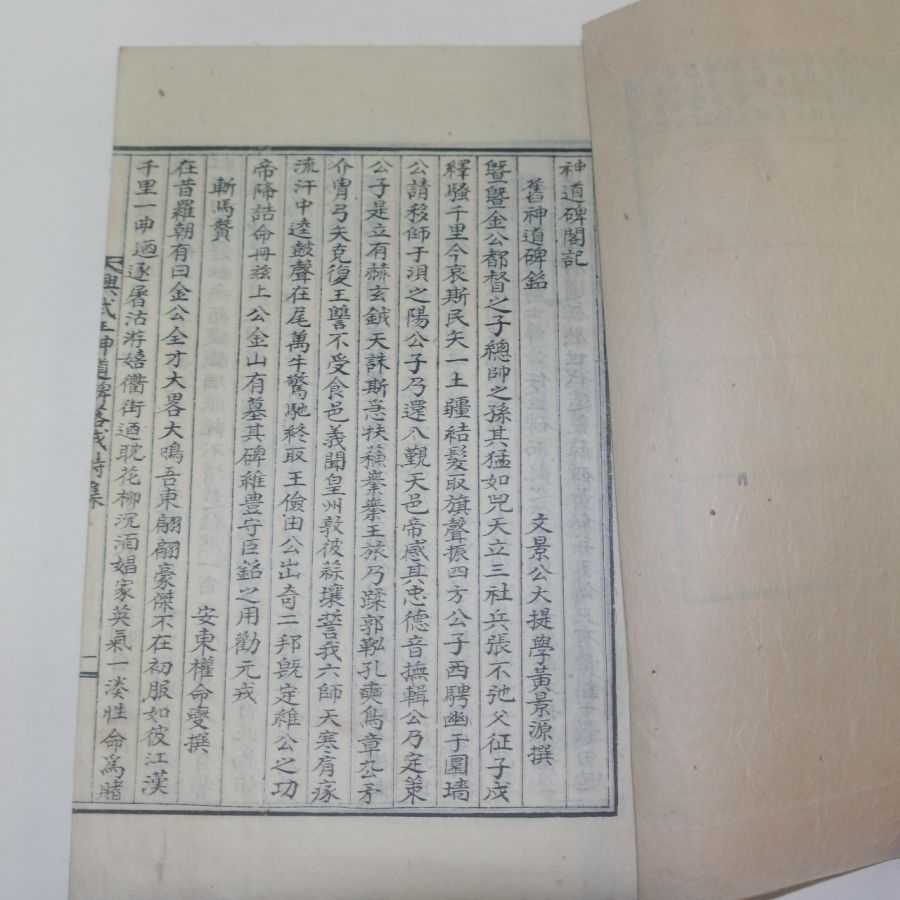 神道碑閣記
舊神道碑銘
文景公大提學黃景源撰
曁曁金公都督之子總帥之孫其猛如兕天立三社兵張不弛父征子戍
釋騷千里今哀斯民矢一土疆結髮取旗聲振四方公子西騁幽于圜墻
公請移師于浿之陽公子乃還入覲天邑帝感其忠德音撫輯公乃定策
公子是立有赫玄鉞天誅斯急扶蘓𣡸𣡸王旅乃蹂郭鞃孔奭鳥章厹矛
介冑弓矢克復王讐不受食邑義聞皇州敦彼蒜壤誓我六師天寒有瘃
流汗中逵鼓聲在尾萬牛驚馳終取王儉由公出奇二邦旣定維公之功
帝降誥命冊玆上公金山有墓其碑維豊守臣銘之用勸元戎
斬馬贊
安東權命燮撰
在昔羅朝有曰金公全才大畧大鳴吾東翩翩豪傑不在初服如彼江漢
千里一曲迺逐屠沽游嬉衢街迺耽花柳沉湎娼家英氣一湊性命爲賭
興武王神道碑落成詩集
一